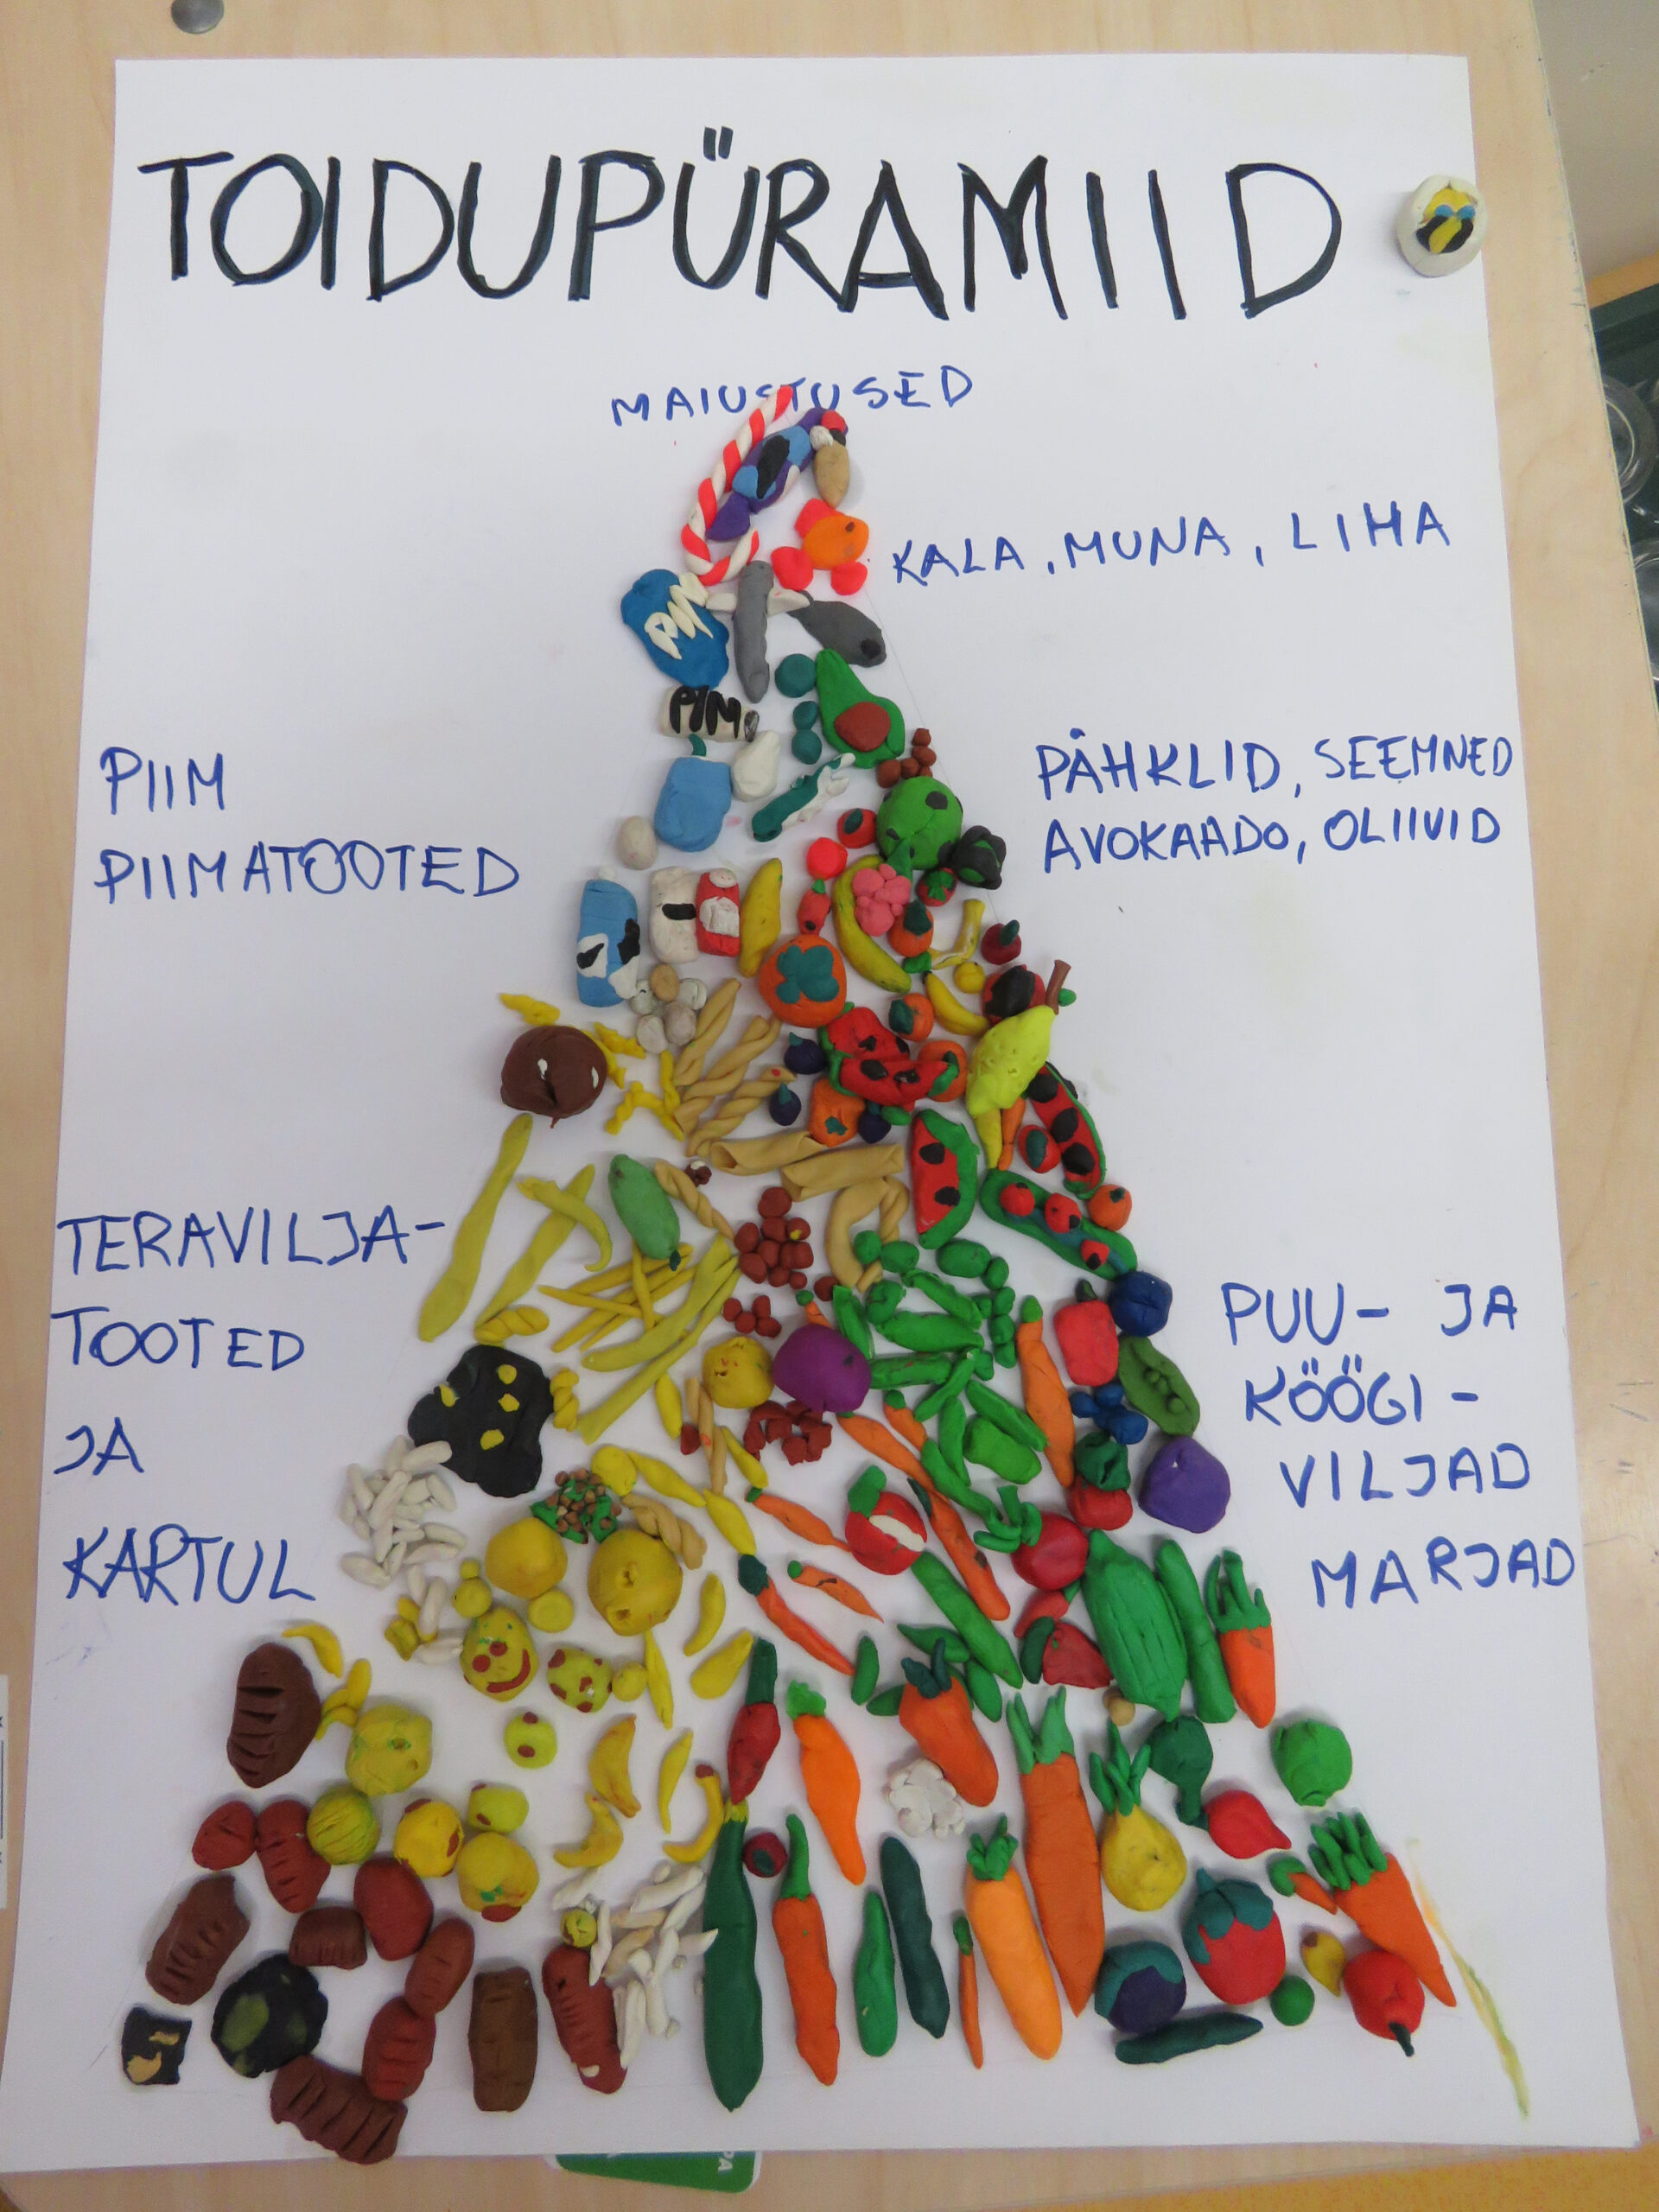 TOIDUPÜRAMIID
MAIUSTUSED
KALA, MUNA, LIHA
PIIM
PIIM
PIIM
PIIMATOOTED
PÄHKLID, SEEMNED
AVOKAADO, OLIIVID
TERAVILJA-
TOOTED
JA
KARTUL
PUU- JA
KÖÖGI-
VILJAD
MARJAD